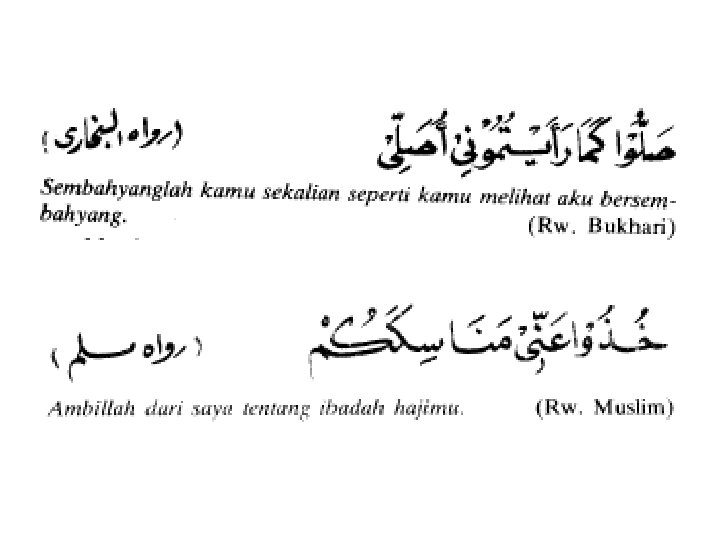 صَلُّوا كَمَا رَأَيْتُمُونِي أُصَلِّي (رواه البخارى)
Sembahyanglah kamu sekalian seperti kamu melihat aku bersem-
bahyang.
(Rw. Bukhari)
خُذُوا عَنِّي مَنَاسِكَكُمْ (رواه مسلم)
Ambillah dari saya tentang ibadah hajimu. (Rw. Muslim)